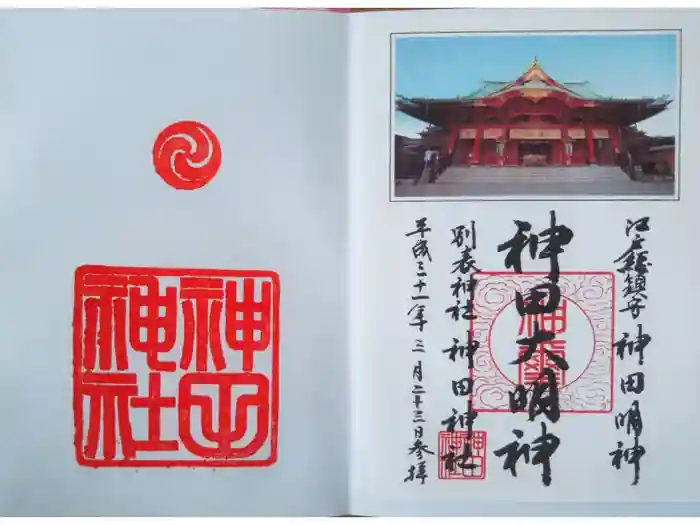 江戸総鎮守 神田明神
神田大明神
別表神社 神田神社
平成三十一年三月二十三日参拝
神田
神社